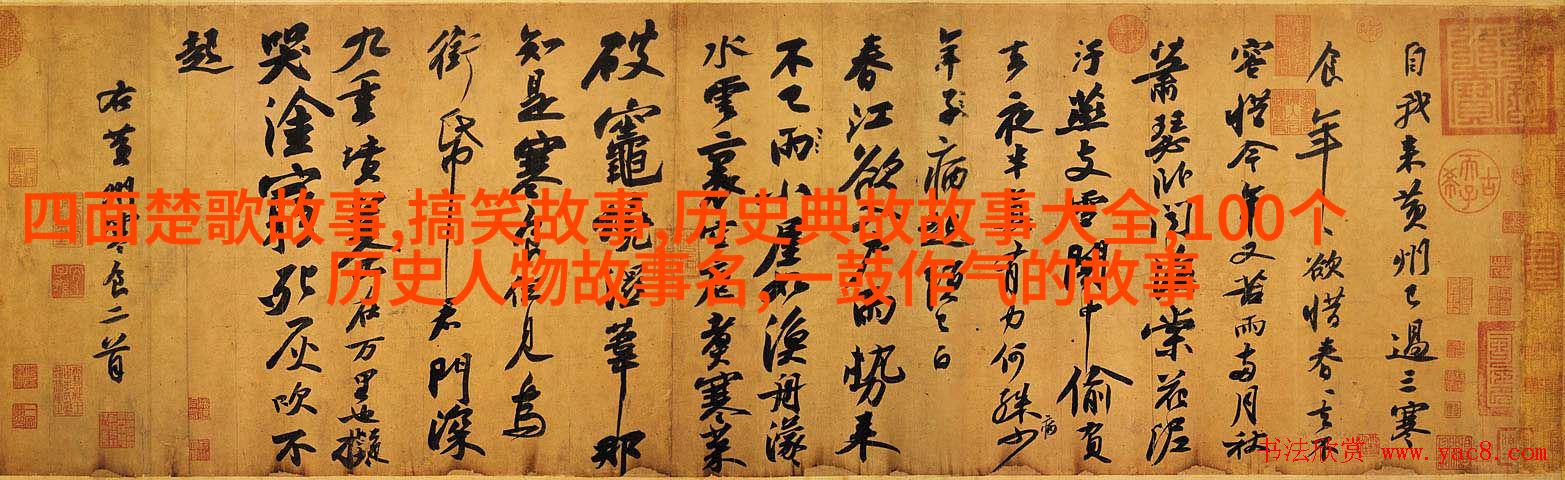 四面楚歌故事,搞笑故事,历史典故故事大全,100个
历史人物故事名,一鼓作气的故事
自我来黄州已過三寒
食年〻欲惜春〻去不
容惜今年又苦雨兩月秋
蕭瑟卧聞海棠花泥
汙燕支雪闇中偷負
去夜半真有力何殊少
病
年子病起須已白
春江欲入户雨勢来
不已雨小屋如漁舟濛
水雲裏空庖煮寒菜
破竈燒濕葦那
知是寒食但見烏
銜帋君門深
九重墳墓在万里也擬
哭塗窮死灰吹不
起
右黄州寒食二首
书法欣赏 www.yac8.com